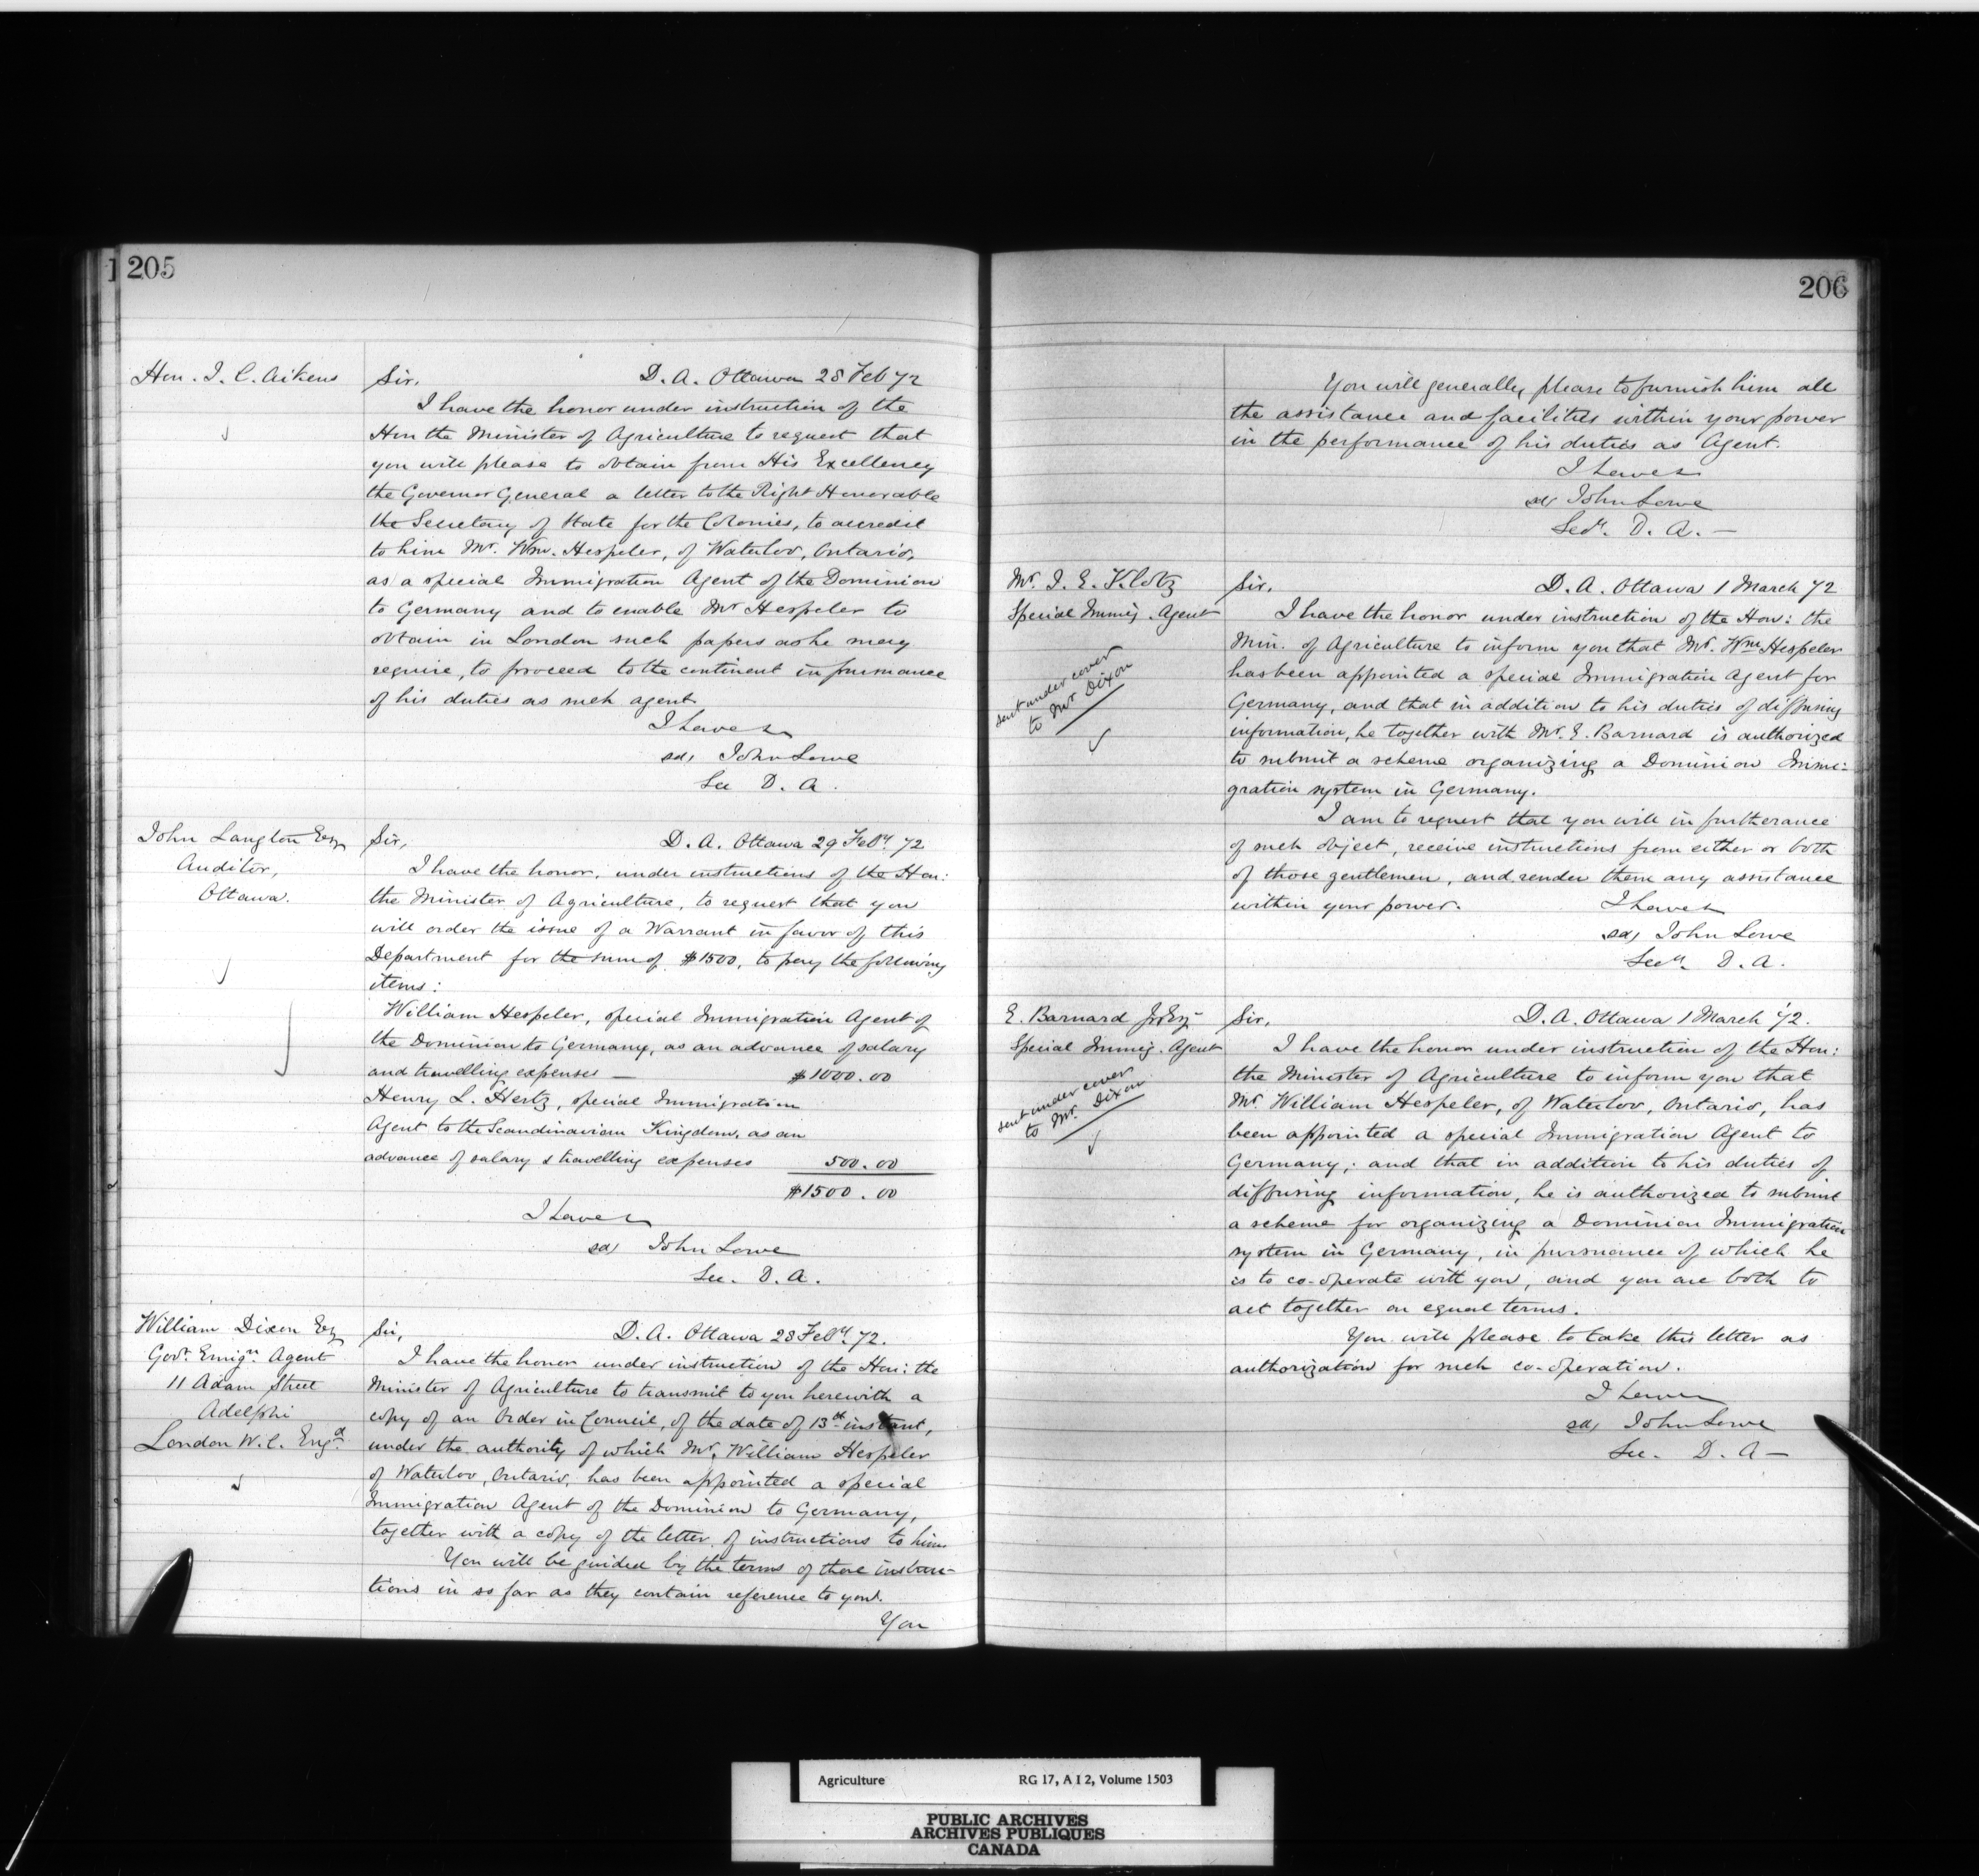 205
Hon. J. C. Aikens
Sir, D. A. Ottawa 28 Feb 72
I have the honor under instruction of the
Hon the Minister of Agriculture to request that
you will please to obtain from His Excellency
the Governor General a letter to the Right Honorable
the Secretary of State for the Colonies, to accredit
to him Mr. Wm. Hespeler, of Waterloo, Ontario,
as a special Immigration Agent of the Dominion
to Germany and to enable Mr Hespeler to
obtain in London such papers as he may
require, to proceed to the continent in pursuance
of his duties as such agent.
I have &
sd, John Lowe
Sec D. A.
John Langton Esq
Auditor,
Ottawa.
Sir, D. A. Ottawa 29 Feby 72
I have the honor, under instructions of the Hon:
the Minister of Agriculture, to request that you
will order the issue of a Warrant in favor of this
Department for the sum of $1500, to pay the following
items:
William Hespeler, special Immigration Agent of
the Dominion to Germany, as an advance of salary
and travelling expenses — $1000.00
Henry L. Hertz, special Immigration
Agent to the Scandinavian Kingdom, as an
advance of salary & travelling expenses 500.00
$1500.00
I have &
sd) John Lowe
Sec. D. A.
William Dixon Esq
Govt Emign Agent
11 Adam Street
Adelphi
London W.C. Engd
Sir, D. A. Ottawa 28 Feby. 72.
I have the honor under instruction of the Hon: the
Minister of Agriculture to transmit to you herewith a
copy of an Order in Council, of the date of 13th instant,
under the authority of which Mr. William Hespeler
of Waterloo, Ontario, has been appointed a special
Immigration Agent of the Dominion to Germany,
together with a copy of the letter of instructions to him.
You will be guided by the terms of those instruc-
tions in so far as they contain reference to you.
You
206
You will generally, please to furnish him all
the assistance and facilities within your power
in the performance of his duties as Agent.
I have &
sd) John Lowe
Secy. D. A. —
Mr. J. E. Klotz
Special Immig. Agent
sent under cover
to Mr Dixon
Sir, D. A. Ottawa 1 March 72
I have the honor under instruction of the Hon: the
Min. of Agriculture to inform you that Mr. Wm Hespeler
has been appointed a special Immigration Agent for
Germany, and that in addition to his duties of diffusing
information, he together with Mr. E. Barnard is authorized
to submit a scheme organizing a Dominion Immi=
gration system in Germany.
I am to request that you will in furtherance
of such object, receive instructions from either or both
of those gentlemen, and render them any assistance
within your power. I have &
sd) John Lowe
Secy. D. A.
E. Barnard Jr Esq
Special Immig. Agent
sent under cover
to Mr. Dixon
Sir, D. A. Ottawa 1 March 72.
I have the honor under instruction of the Hon:
the Minister of Agriculture to inform you that
Mr. William Hespeler, of Waterloo, Ontario, has
been appointed a special Immigration Agent to
Germany; and that in addition to his duties of
diffusing information, he is authorized to submit
a scheme for organizing a Dominion Immigration
system in Germany, in pursuance of which he
is to co-operate with you, and you are both to
act together on equal terms.
You will please to take this letter as
authorization for such co-operation.
I have &
sd) John Lowe
Sec. D. A —
Agriculture RG 17, A I 2, Volume 1503
PUBLIC ARCHIVES
ARCHIVES PUBLIQUES
CANADA